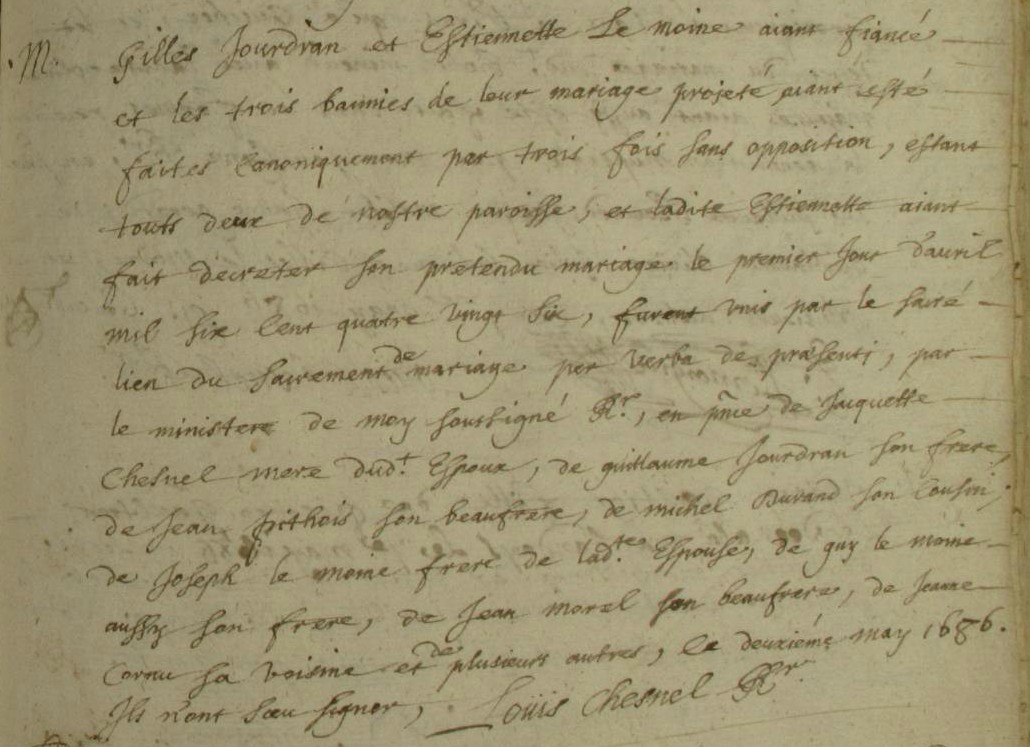 M. Gilles Jourdran et Estiennette Le moine aiant fiancé
et les trois bannies de leur mariage projeté aiant esté
faites Canoniquement par trois fois sans opposition, estant
touts deux de nostre paroisse, et ladite Estiennette aiant
fait décreter son prétendu mariage le premier Jour d'avril
mil six Cent quatre vingt six, furent unis par le sacré
lien du sacrement de mariage per verba de præsenti, par
le ministere de moy soussigné Rr., en pnce de Jacquette
Chesnel mere dud.t Espoux, de guillaume Jourdran son frere,
de Jean pithois son beaufrere, de michel Durand son Cousin,
de Joseph le moine frere de lad.te Espouse, de guy le moine
aussy son frere, de Jean morel son beaufrere, de Jeanne
Cornu sa voisine et de plusieurs autres, le deuxiéme may 1686.
Ils n'ont sceu signer, Louis Chesnel Rr.